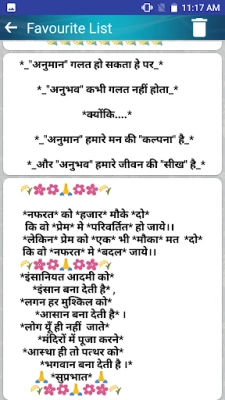 11:17 AM
Favourite List
*_"अनुमान" गलत हो सकता हे पर_*
*_"अनुभव" कभी गलत नहीं होता_*
*क्योंकि....*
*_"अनुमान" हमारे मन की "कल्पना" है_*
*_और "अनुभव" हमारे जीवन की "सीख" है_*
*नफरत* को *हजार* मौके *दो*
कि वो *प्रेम* मे *परिवर्तित* हो जाये।।
*लेकिन* प्रेम को *एक* भी *मौका* मत *दो*
कि वो *नफरत* मे *बदल* जाये।।
*इंसानियत आदमी को*
*इंसान बना देती है* ,
*लगन हर मुश्किल को*
*आसान बना देती है* ।
*लोग यूँ ही नहीं जाते*
*मंदिरों में पूजा करने*
*आस्था ही तो पत्थर को*
*भगवान बना देती है ।*
*सुप्रभात*